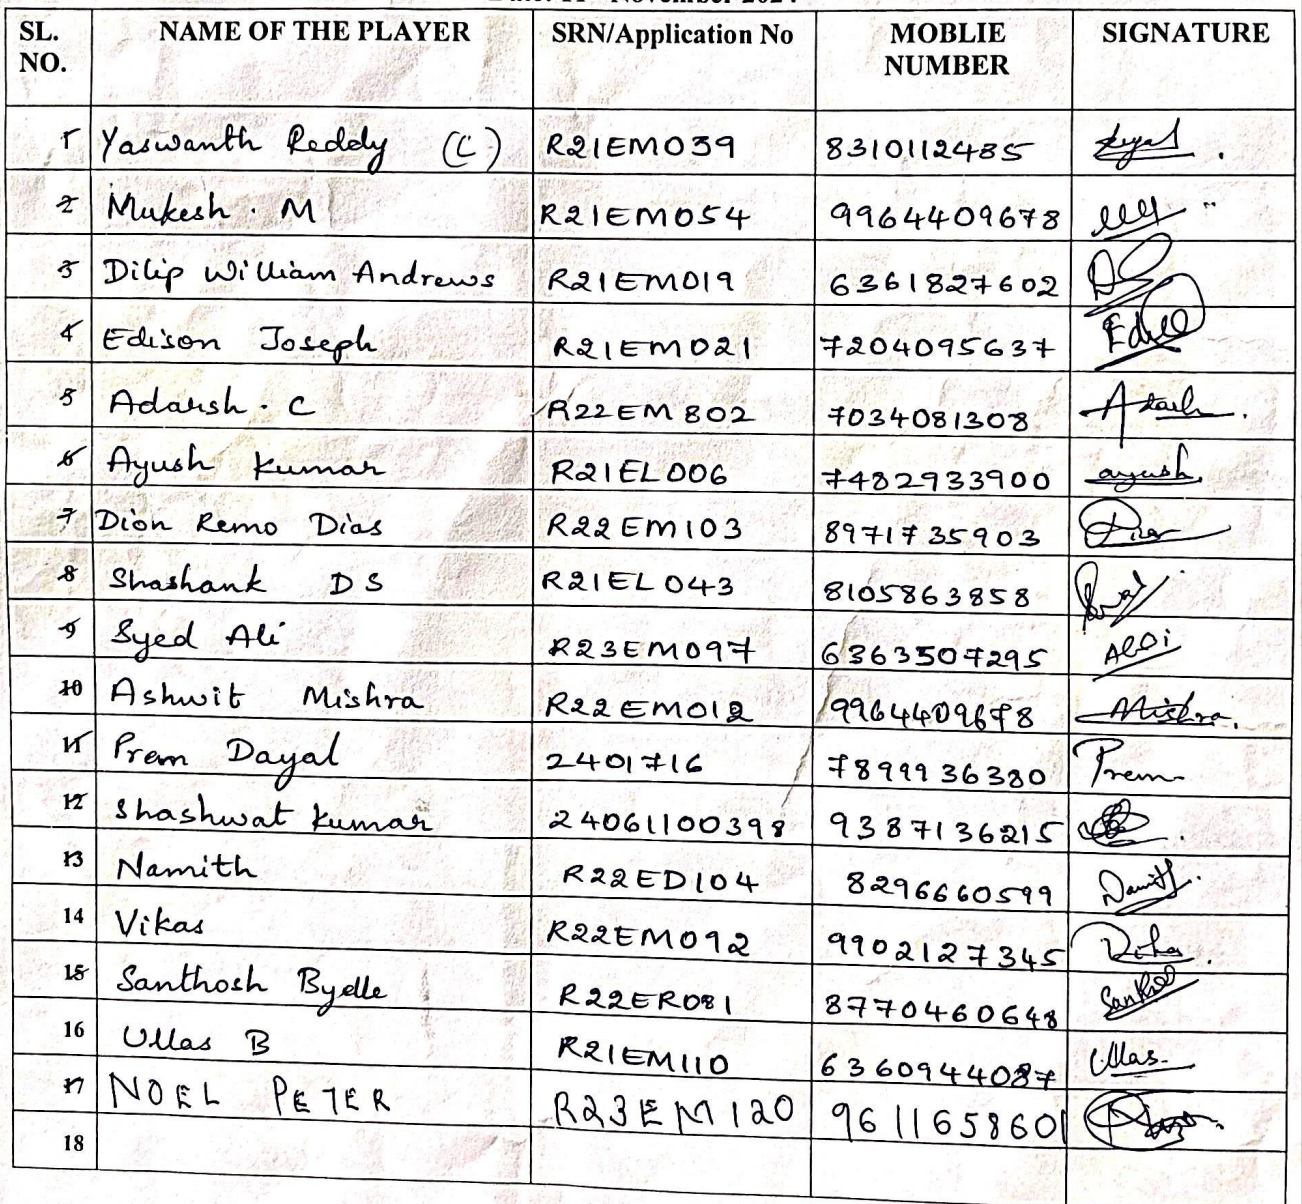 SL. NO. NAME OF THE PLAYER SRN/Application No MOBLIE NUMBER SIGNATURE
1 Yaswanth Reddy (C) R21EM039 8310112485
2 Mukesh. M R21EM054 9964409678
3 Dilip William Andrews R21EM019 6361827602
4 Edison Joseph R21EM021 7204095637
5 Adarsh. C R22EM802 7034081308 Adarsh.
6 Ayush Kumar R21EL006 7482933900 ayush.
7 Dion Remo Dias R22EM103 8971735903
8 Shashank D S R21EL043 8105863858
9 Syed Ali R23EM097 6363507295
10 Ashwit Mishra R22EM012 9964409678 Mishra.
11 Prem Dayal 2401716 7899936380 Prem
12 Shashwat Kumar 24061100398 9387136215
13 Namith R22ED104 8296660599 Namith.
14 Vikas R22EM092 9902127345
15 Santhosh Byelle R22ER081 8770460648
16 Ullas B R21EM110 6360944087 Ullas.
17 NOEL PETER R23EM120 9611658601
18